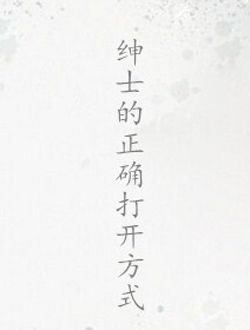 绅士的正确打开方式